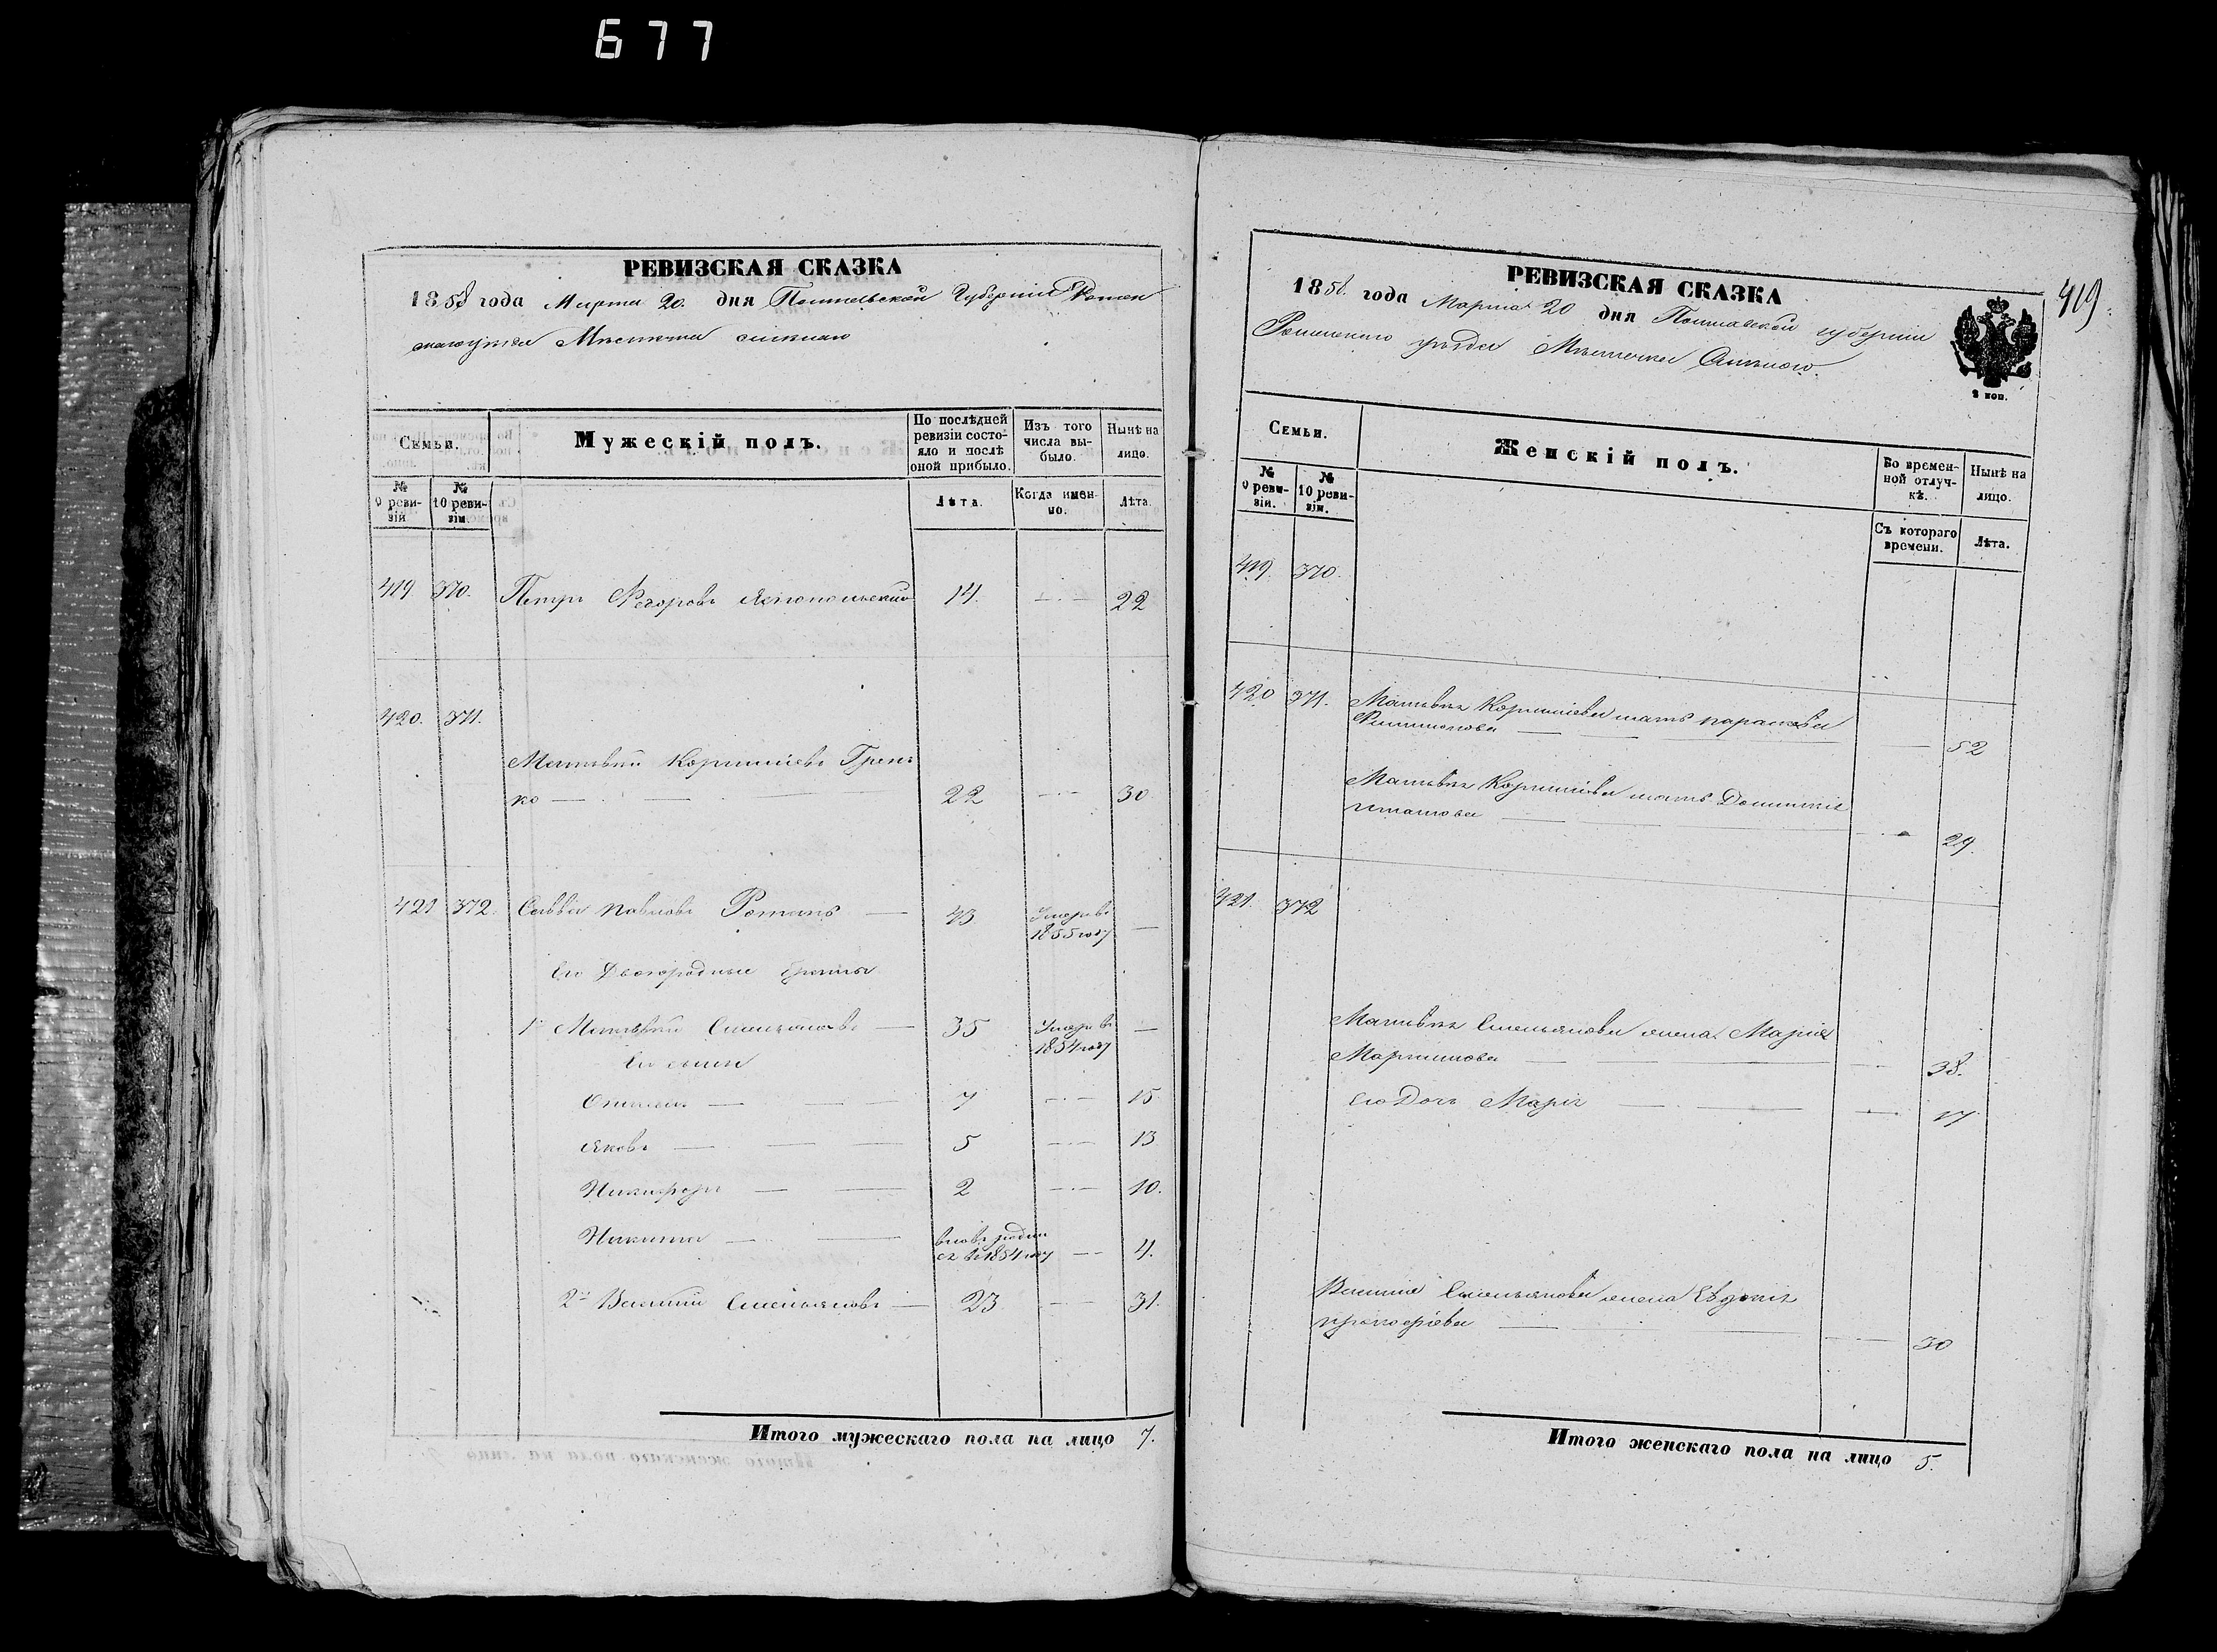 677
РЕВИЗСКАЯ СКАЗКА
1858 года Марта 20. дня Полтавской Губернии Ромен
скаго уезда Местечка Смелаго
Семьи.
Мужескій полъ.
По послѣдней ревизіи состояло и послѣ оной прибыло.
Изъ того числа выбыло.
Нынѣ на лицо.
№ 9 ревизіи
№ 10 ревизіи.
Лѣта.
Когда именно.
Лѣта.
419 370. Петръ Федоровъ 14. 22
420. 371.
Матвѣй Корнилиевъ Грень
ко 22 30
421 372. Савва Павловъ Ротань 43 Умеръ въ 1855 году
Его Двоюродные братья
1й Матвѣй Емельяновъ 35 Умеръ въ 1854 году
Его сыны
7 15
Яковъ 5 13
Никифоръ 2 10.
Никита вновь родился въ 1854 году 4.
2й Василий Емельяновъ 23 31.
Итого мужескаго пола на лицо 7.
419.
РЕВИЗСКАЯ СКАЗКА
1858. года Марта 20 дня Полтавской губернии
Роменскаго уѣзда Мѣстечка Смелаго.
2 коп.
Семьи.
Женскій полъ.
Во временной отлучкѣ.
Нынѣ на лицо.
№ 9 ревизіи.
№ 10 ревизіи.
Съ котораго времени.
Лѣта.
419. 370.
420 371. Матвѣя Корнилиева мать Параскева
52
Матвѣя Корнилиева Домникия
29.
421. 372
Матвѣя Емельянова жена Мария
Мартинова 38.
Его Дочь Марія 17
Василия Емельянова жена Евдокия
Прокофіева 30
Итого женскаго пола на лицо 5.